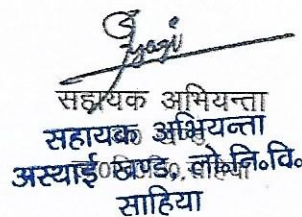 सहायक अभियन्ता
सहायक अभियन्ता
अस्थाई खण्ड, लो०नि०वि०
साहिया